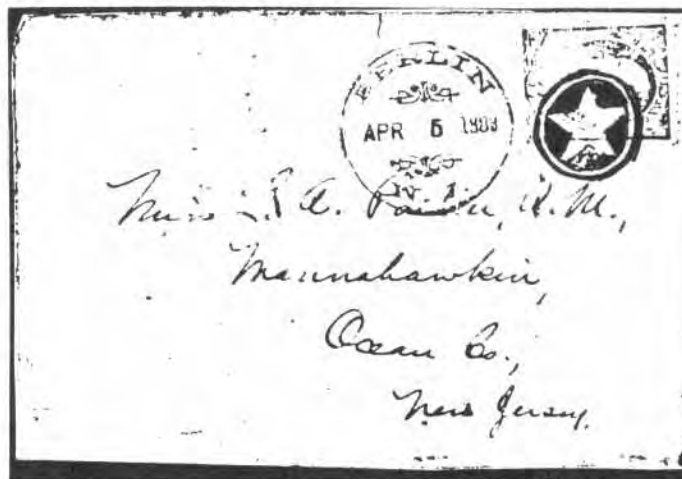 BERLIN
APR 5
N. J.
Miss A.
Mannahawkin,
Ocean Co.,
New Jersey.